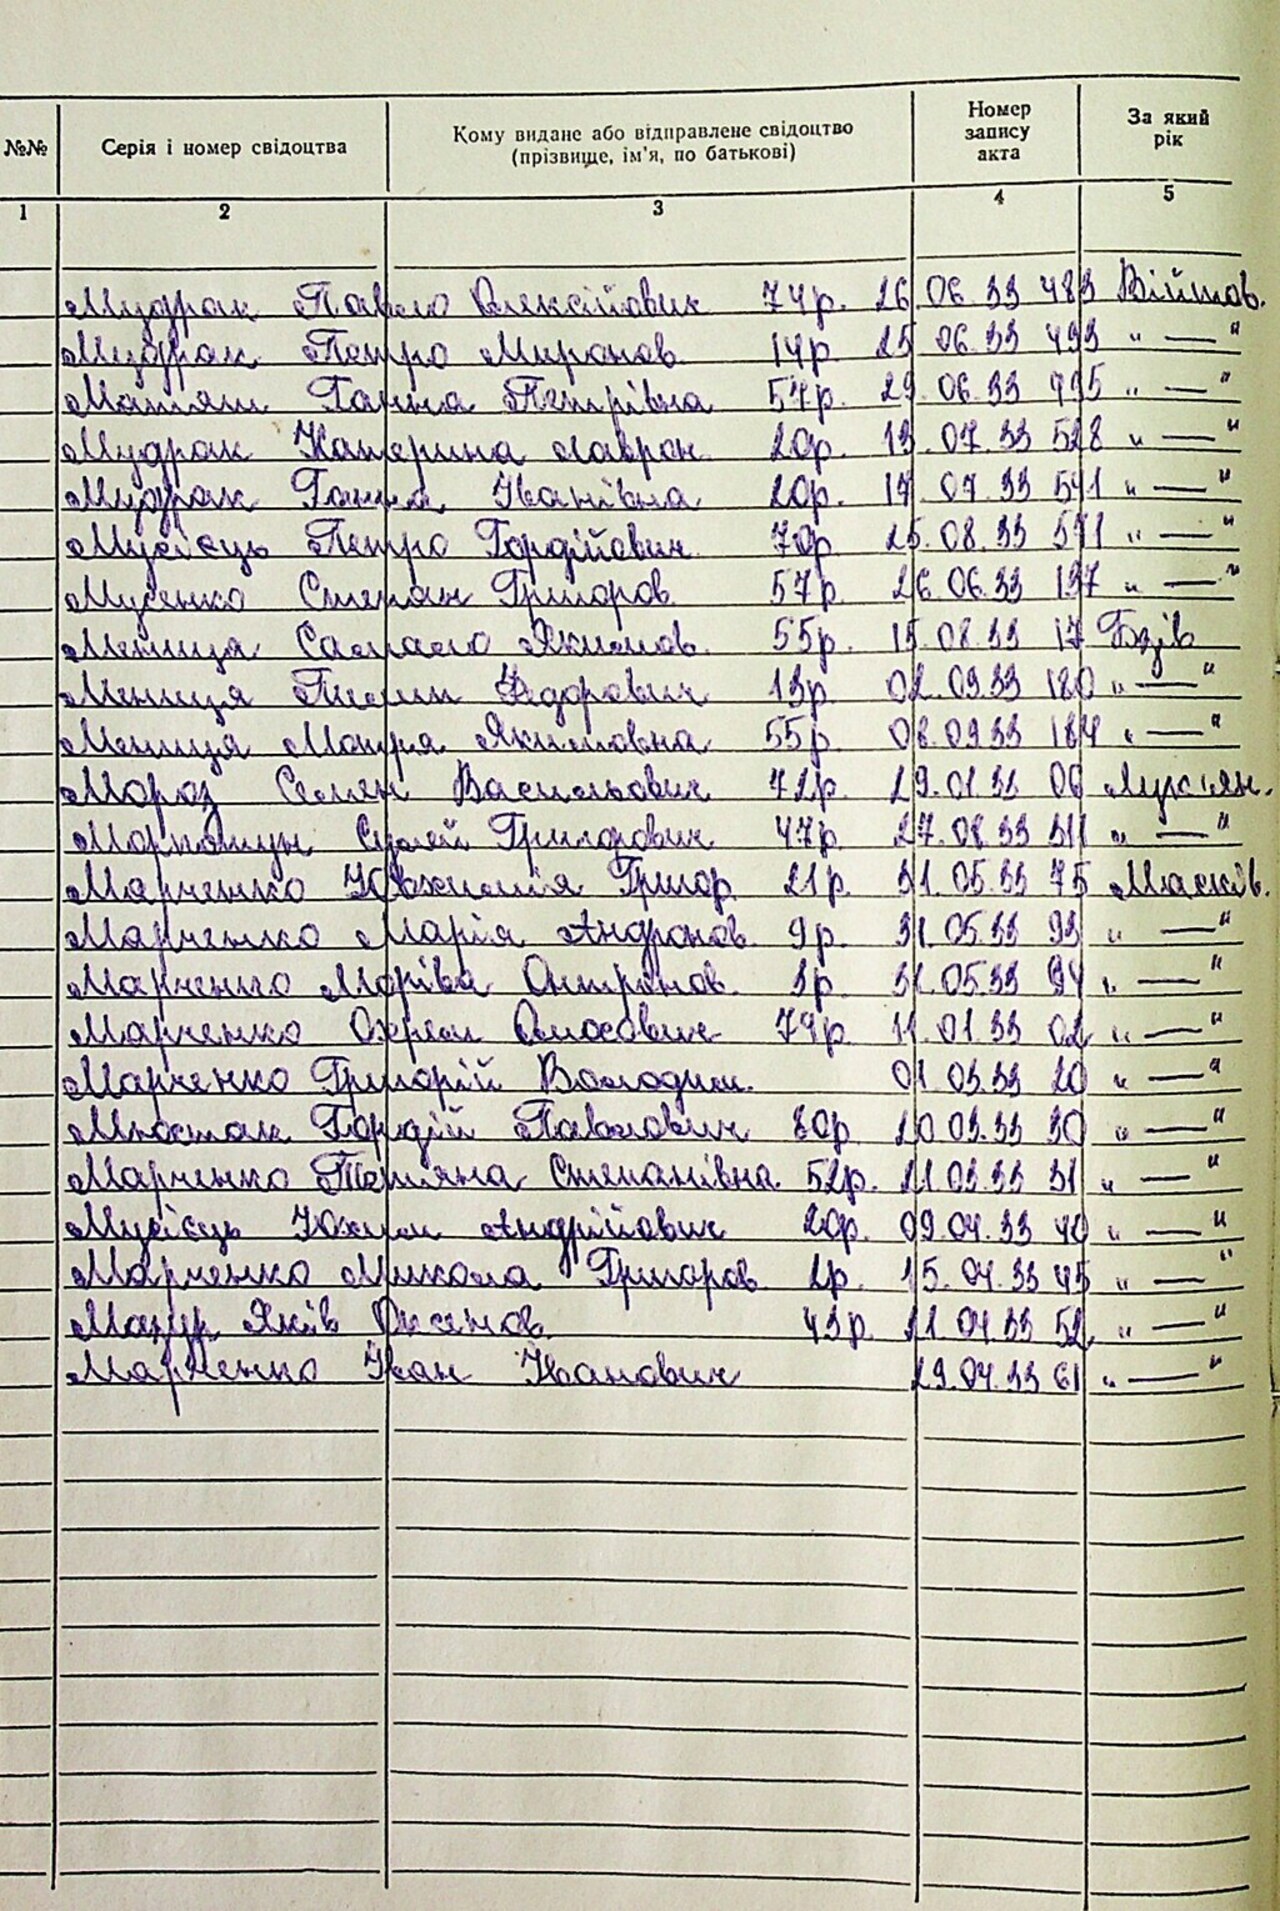 №№ Серія і номер свідоцтва Кому видане або відправлене свідоцтво (прізвище, ім'я, по батькові) Номер запису акта За який рік
1 2 3 4 5
Мудрак Павло Олексійович 74р. 26 06 33 483 Війтов.
Мудрак Петро Миронов 14р 25 06.33 493 " — "
Ганна Петрівна 57р. 29.06.33 495 " — "
Мудрак Катерина Лаврон 20р. 13.07.33 528 " — "
Мудрак Ганна Іванівна 20р. 17.07.33 541 " — "
Мусієць Петро Гордійович 70р 25.08.33 571 " — "
Мусенко Степан Григоров 57р. 26.06.33 137 " — "
Мениця Самайло Якимов. 55р. 15.08.33 17 Бзів
Мениця Федорович 13р. 02.09.33 180 " — "
Мениця Мотря Якимовна 55р. 08.09.33 184 " — "
Мороз Семен Васильович 72р. 29.01.33 06 Лук'ян.
Сергій Григорович 47р. 27.08.33 311 " — "
Марченко Ювхимія Григор. 21р. 31.05.33 75 Масків.
Марченко Марія Андронов. 9р. 31.05.33 93 " — "
Марченко 3р. 31.05.33 94 " — "
Марченко Охрем Опасович 79р. 11.01.33 02 " — "
Марченко Григорій Володим. 01.03.33 20 " — "
Гордій Павлович 30р. 20.03.33 30 " — "
Марченко Тетяна Степанівна. 52р. 21.03.33 31 " — "
Мусієць Юхим Андрійович 20р. 09.04.33 40 " — "
Марченко Микола Григоров. 2р. 15.04.33 45 " — "
Мазур Яків 43р. 21.04.33 52 " — "
Марченко Іван Іванович 29.04.33 61 " — "